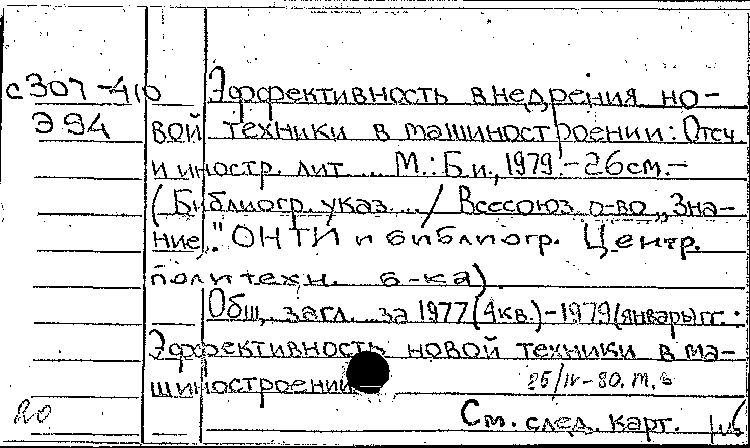 с307-410 Эффективность внедрения но-
Э94 вой техники в машиностроении: Отеч.
и иностр. лит.... М.: Б.и., 1979.-26см.-
(Библиогр. указ.../ Всесоюз. о-во „Зна-
ние," ОНТИ и библиогр. Центр.
политехн. б-ка).
Общ. загл. за 1977(4кв.)-1979(январь)гг.:
Эффективность новой техники в ма-
шиностроении
25/IV-80.
20 См. след. карт.